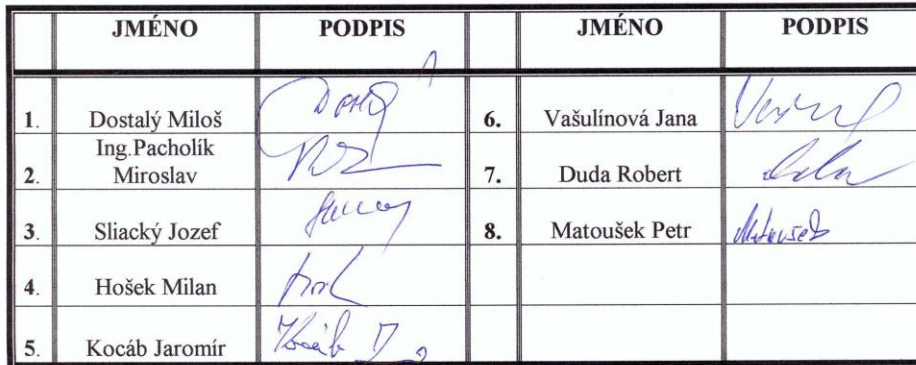 JMÉNO PODPIS JMÉNO PODPIS
1. Dostalý Miloš 6. Vašulínová Jana
Ing.Pacholík
2. Miroslav 7. Duda Robert Duda
3. Sliacký Jozef 8. Matoušek Petr Matoušek
4. Hošek Milan
5. Kocáb Jaromír Kocáb J.